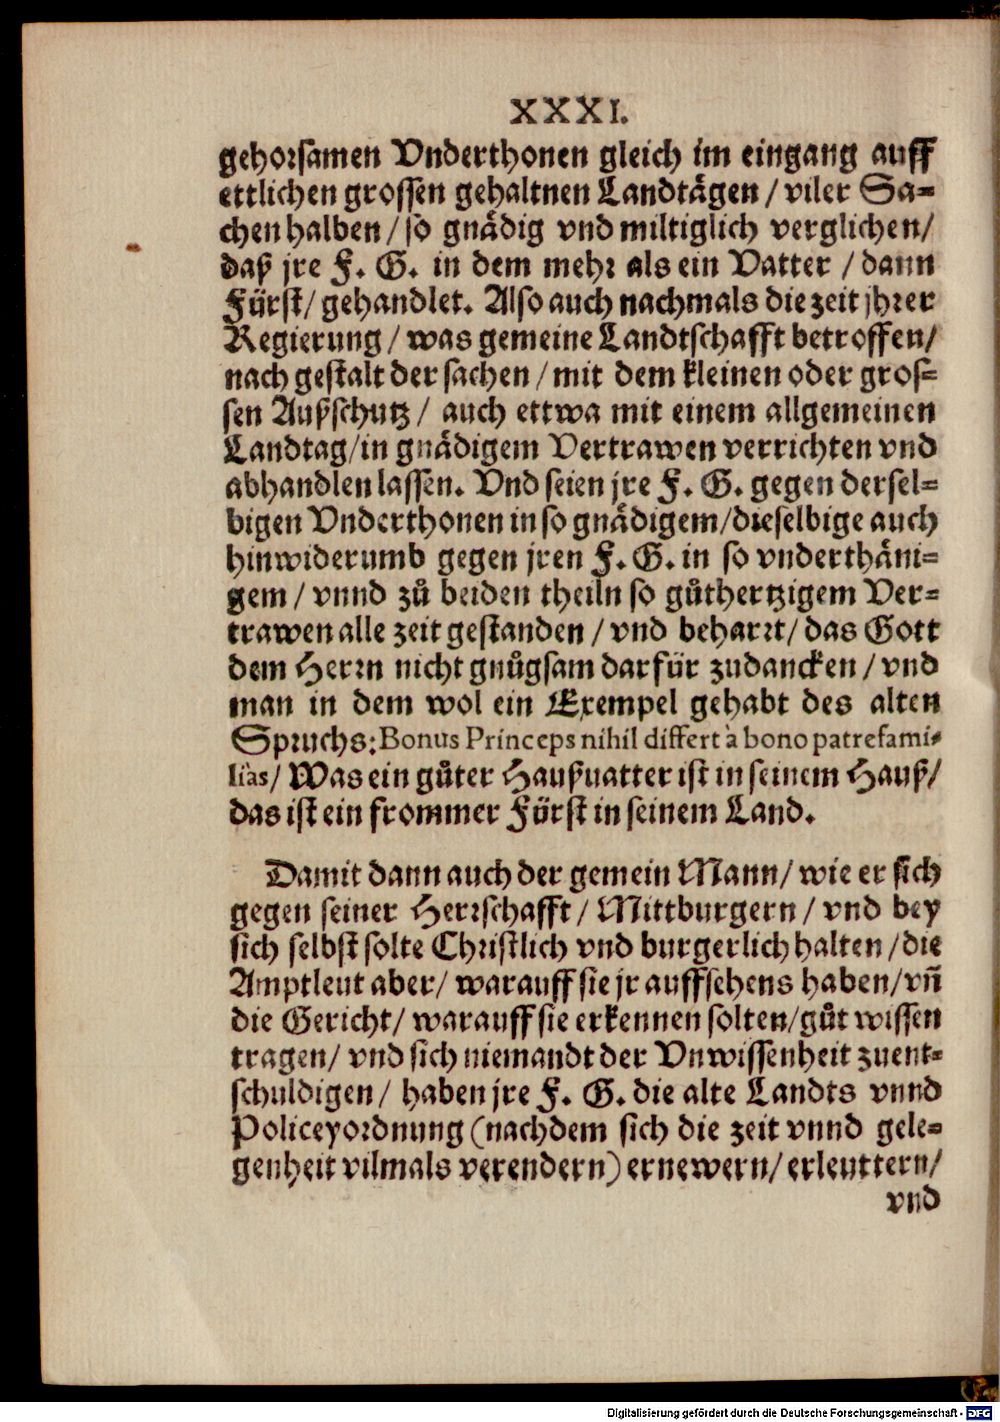 XXXI.
gehorsamen Vnderthonen gleich im eingang auff
ettlichen grossen gehaltnen Landtägen / viler Sa=
chen halben / so gnädig vnd miltiglich verglichen /
daß jre F. G. in dem mehr als ein Vatter / dann
Fürst / gehandlet. Also auch nachmals die zeit jhrer
Regierung / was gemeine Landtschafft betroffen /
nach gestalt der sachen / mit dem kleinen oder gros=
sen Außschutz / auch ettwa mit einem allgemeinen
Landtag / in gnädigem Vertrawen verrichten vnd
abhandlen lassen. Vnd seien jre F. G. gegen dersel=
bigen Vnderthonen in so gnädigem / dieselbige auch
hinwiderumb gegen jren F. G. in so vnderthäni=
gem / vnnd zů beiden theiln so gůthertzigem Ver=
trawen alle zeit gestanden / vnd beharrt / das Gott
dem Herrn nicht gnůgsam darfür zudancken / vnd
man in dem wol ein Exempel gehabt des alten
Spruchs: Bonus Princeps nihil differt à bono patrefami=
liàs / Was ein gůter Haußuatter ist in seinem Hauß /
das ist ein frommer Fürst in seinem Land.
Damit dann auch der gemein Mann / wie er sich
gegen seiner Herrschafft / Mittburgern / vnd bey
sich selbst solte Christlich vnd burgerlich halten / die
Amptleut aber / warauff sie jr auffsehens haben / vn̄
die Gericht / warauff sie erkennen solten / gůt wissen
tragen / vnd sich niemandt der Vnwissenheit zuent=
schuldigen / haben jre F. G. die alte Landts vnnd
Policeyordnung (nachdem sich die zeit vnnd gele=
genheit vilmals verendern) ernewern / erleuttern /
vnd
Digitalisierung gefördert durch die Deutsche Forschungsgemeinschaft - DFG